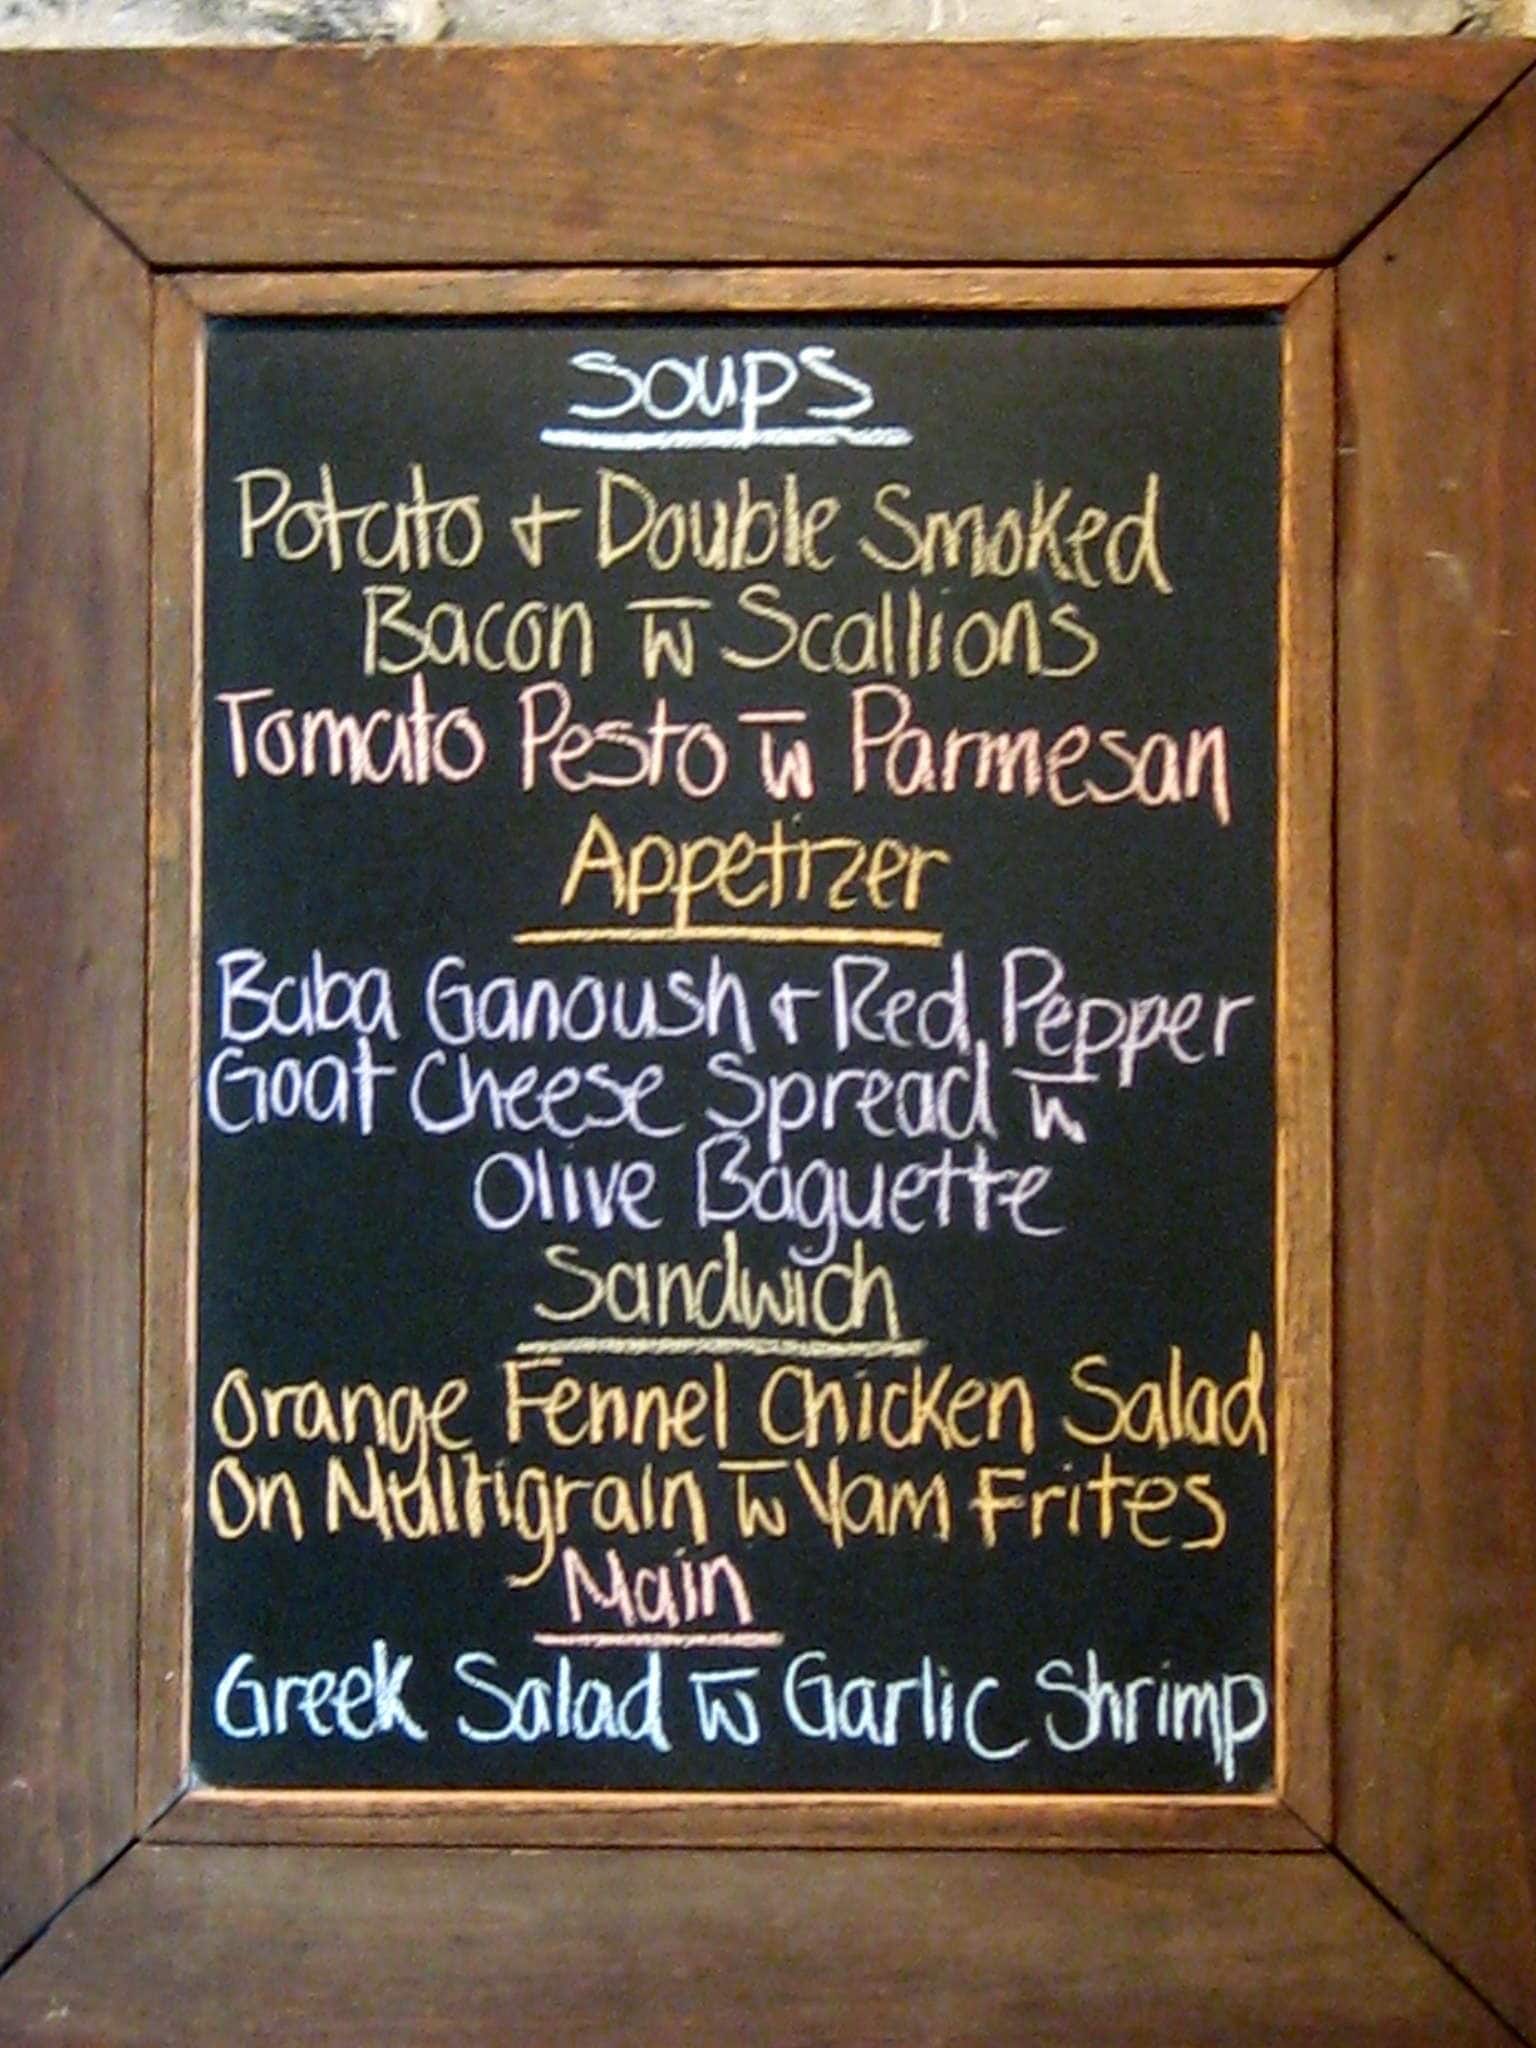 Soups
Potato + Double Smoked
Bacon w̅ Scallions
Tomato Pesto w̅ Parmesan
Appetizer
Baba Ganoush + Red Pepper
Goat Cheese Spread w̅
Olive Baguette
Sandwich
Orange Fennel Chicken Salad
On Multigrain w̅ Yam Frites
Main
Greek Salad w̅ Garlic Shrimp